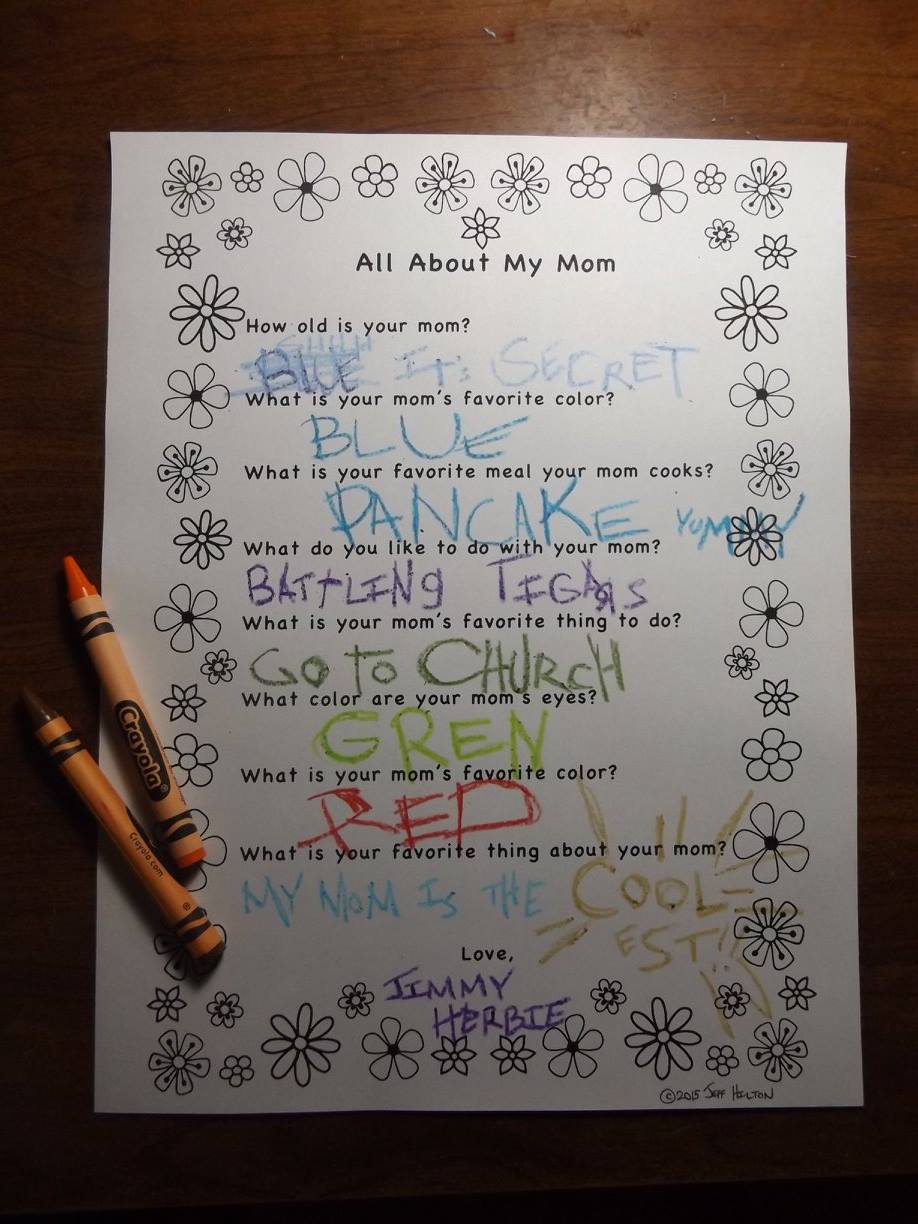 All About My Mom
How old is your mom?
SHHHH
BLUE It's SECRET
What is your mom's favorite color?
BLUE
What is your favorite meal your mom cooks?
PANCAKE YUMMY
What do you like to do with your mom?
BATTLING TIGARS
What is your mom's favorite thing to do?
GO TO CHURCH
What color are your mom's eyes?
GREN
What is your mom's favorite color?
RED
What is your favorite thing about your mom?
MY MOM IS THE COOL-
EST!!
Love,
JIMMY
HERBIE
©2015 JEFF HILTON
Crayola
Crayola.com